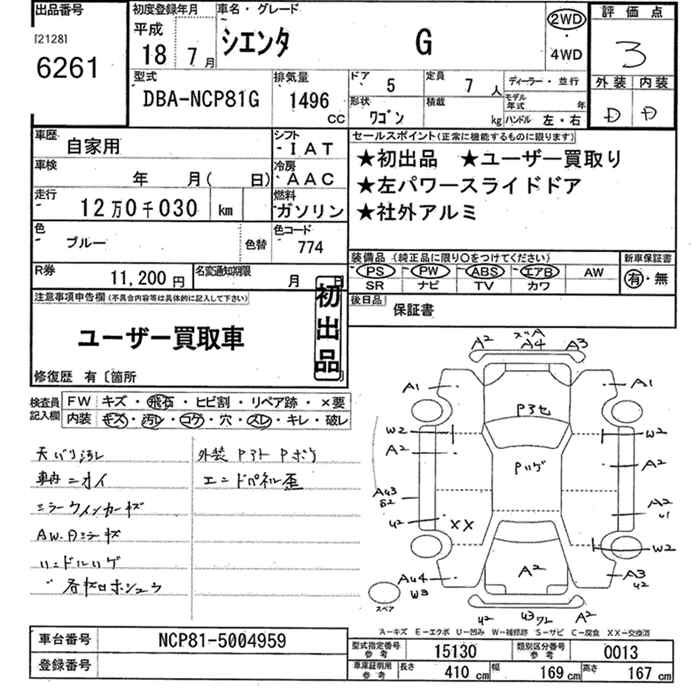 出品番号
[2128]
6261
初度登録年月
平成
18 7月
車名・グレード
シエンタ G
2WD
・
4WD
評価点
3
外装 内装
D D
型式
DBA-NCP81G
排気量
1496
CC
ドア 5
定員 7 人
ディーラー・並行
形状 ワゴン
積載 kg
モデル年式 年
ハンドル 左・右
車歴 自家用
シフト
-IAT
車検 年 月( 日)
冷房
AAC
走行
12万0千030 km
燃料
ガソリン
色 ブルー
色替
色コード
774
R券 11,200円
名変通知期限 月 日
セールスポイント(正常に機能するものに限ります)
★初出品 ★ユーザー買取り
★左パワースライドドア
★社外アルミ
装備品 (純正品に限り○をつけてください)
PS PW ABS エアB AW
SR ナビ TV カワ
新車保証書
有・無
後日品 保証書
注意事項申告欄(不具合内容等は具体的に記入して下さい)
初出品
ユーザー買取車
修復歴 有〔箇所
検査員記入欄
FW キズ・飛石・ヒビ割・リペア跡・×要
内装 キズ・汚レ・コゲ・穴・スレ・キレ・破レ
天バリ汚レ
車内ニオイ
ミラーウィンカーキズ
AW.Dミラーキズ
ハンドルハゲ
外装
エンドパネル歪
A2 A4 A3
A1 A1
W2 W2
A2 A2
Pハゲ
XX
A2
W2
A3
A2
スペア
A-キズ E-エクボ U-凹み W-補修跡 S-サビ C-腐食 XX-交換済
車台番号 NCP81-5004959
登録番号
型式指定番号参考 15130
類別区分番号参考 0013
車庫証明用参考 長さ 410cm 幅 169cm 高さ 167cm